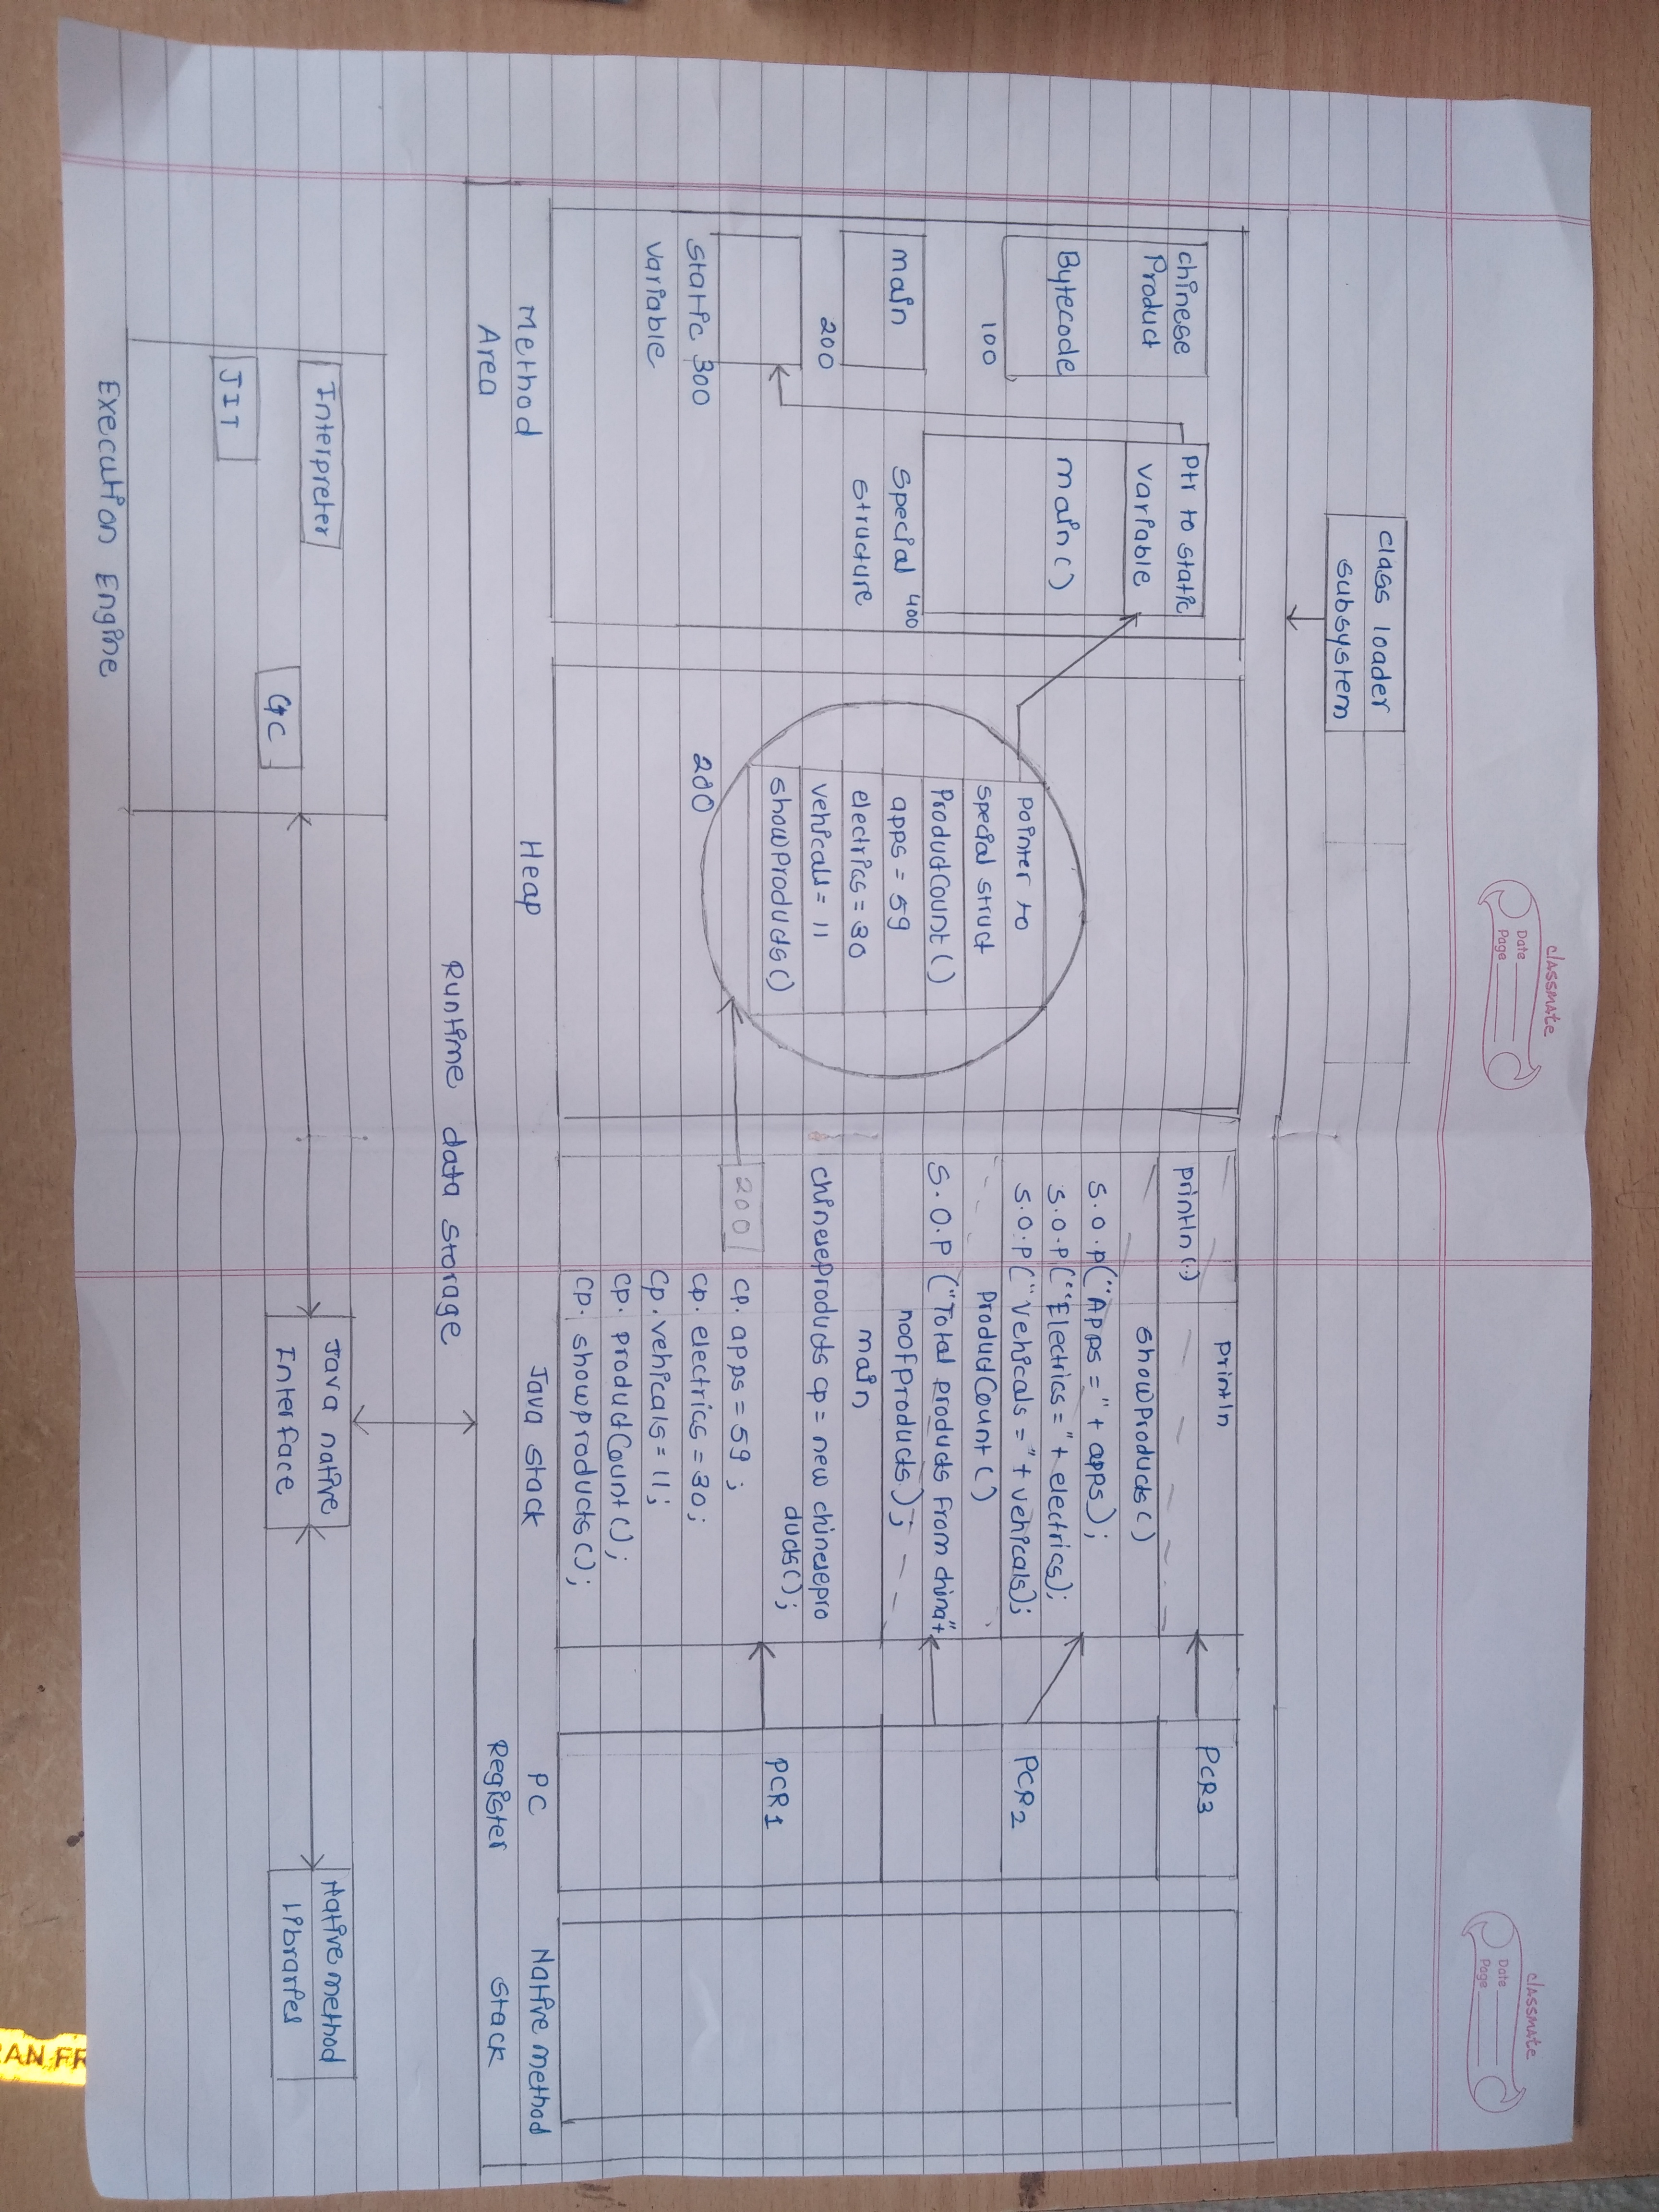 classmate
Date
Page
classmate
Date
Page
class loader
subsystem
chinese
Product
Bytecode
100
main
200
static 300
variable
Method
Area
Ptr to static
variable
main()
special 400
structure
pointer to
special struct
ProductCount()
apps = 59
electrics = 30
vehicals = 11
showProducts()
200
Heap
println
println()
showProducts()
S.O.P("Apps =" + apps);
S.O.P("Electrics =" + electrics);
S.O.P("Vehicals =" + vehicals);
ProductCount()
S.O.P ("Total products from china"+
noofproducts);
main
chineseproducts cp = new chinesepro
ducts();
200
cp. apps = 59 ;
cp. electrics = 30;
cp. vehicals = 11;
cp. productCount();
cp. showproducts();
Java stack
PCR3
PCR2
PCR1
PC
Register
Native method
stack
Runtime data storage
Interpreter
JIT
GC
Execution Engine
Java native
Interface
Native method
libraries
AN FR